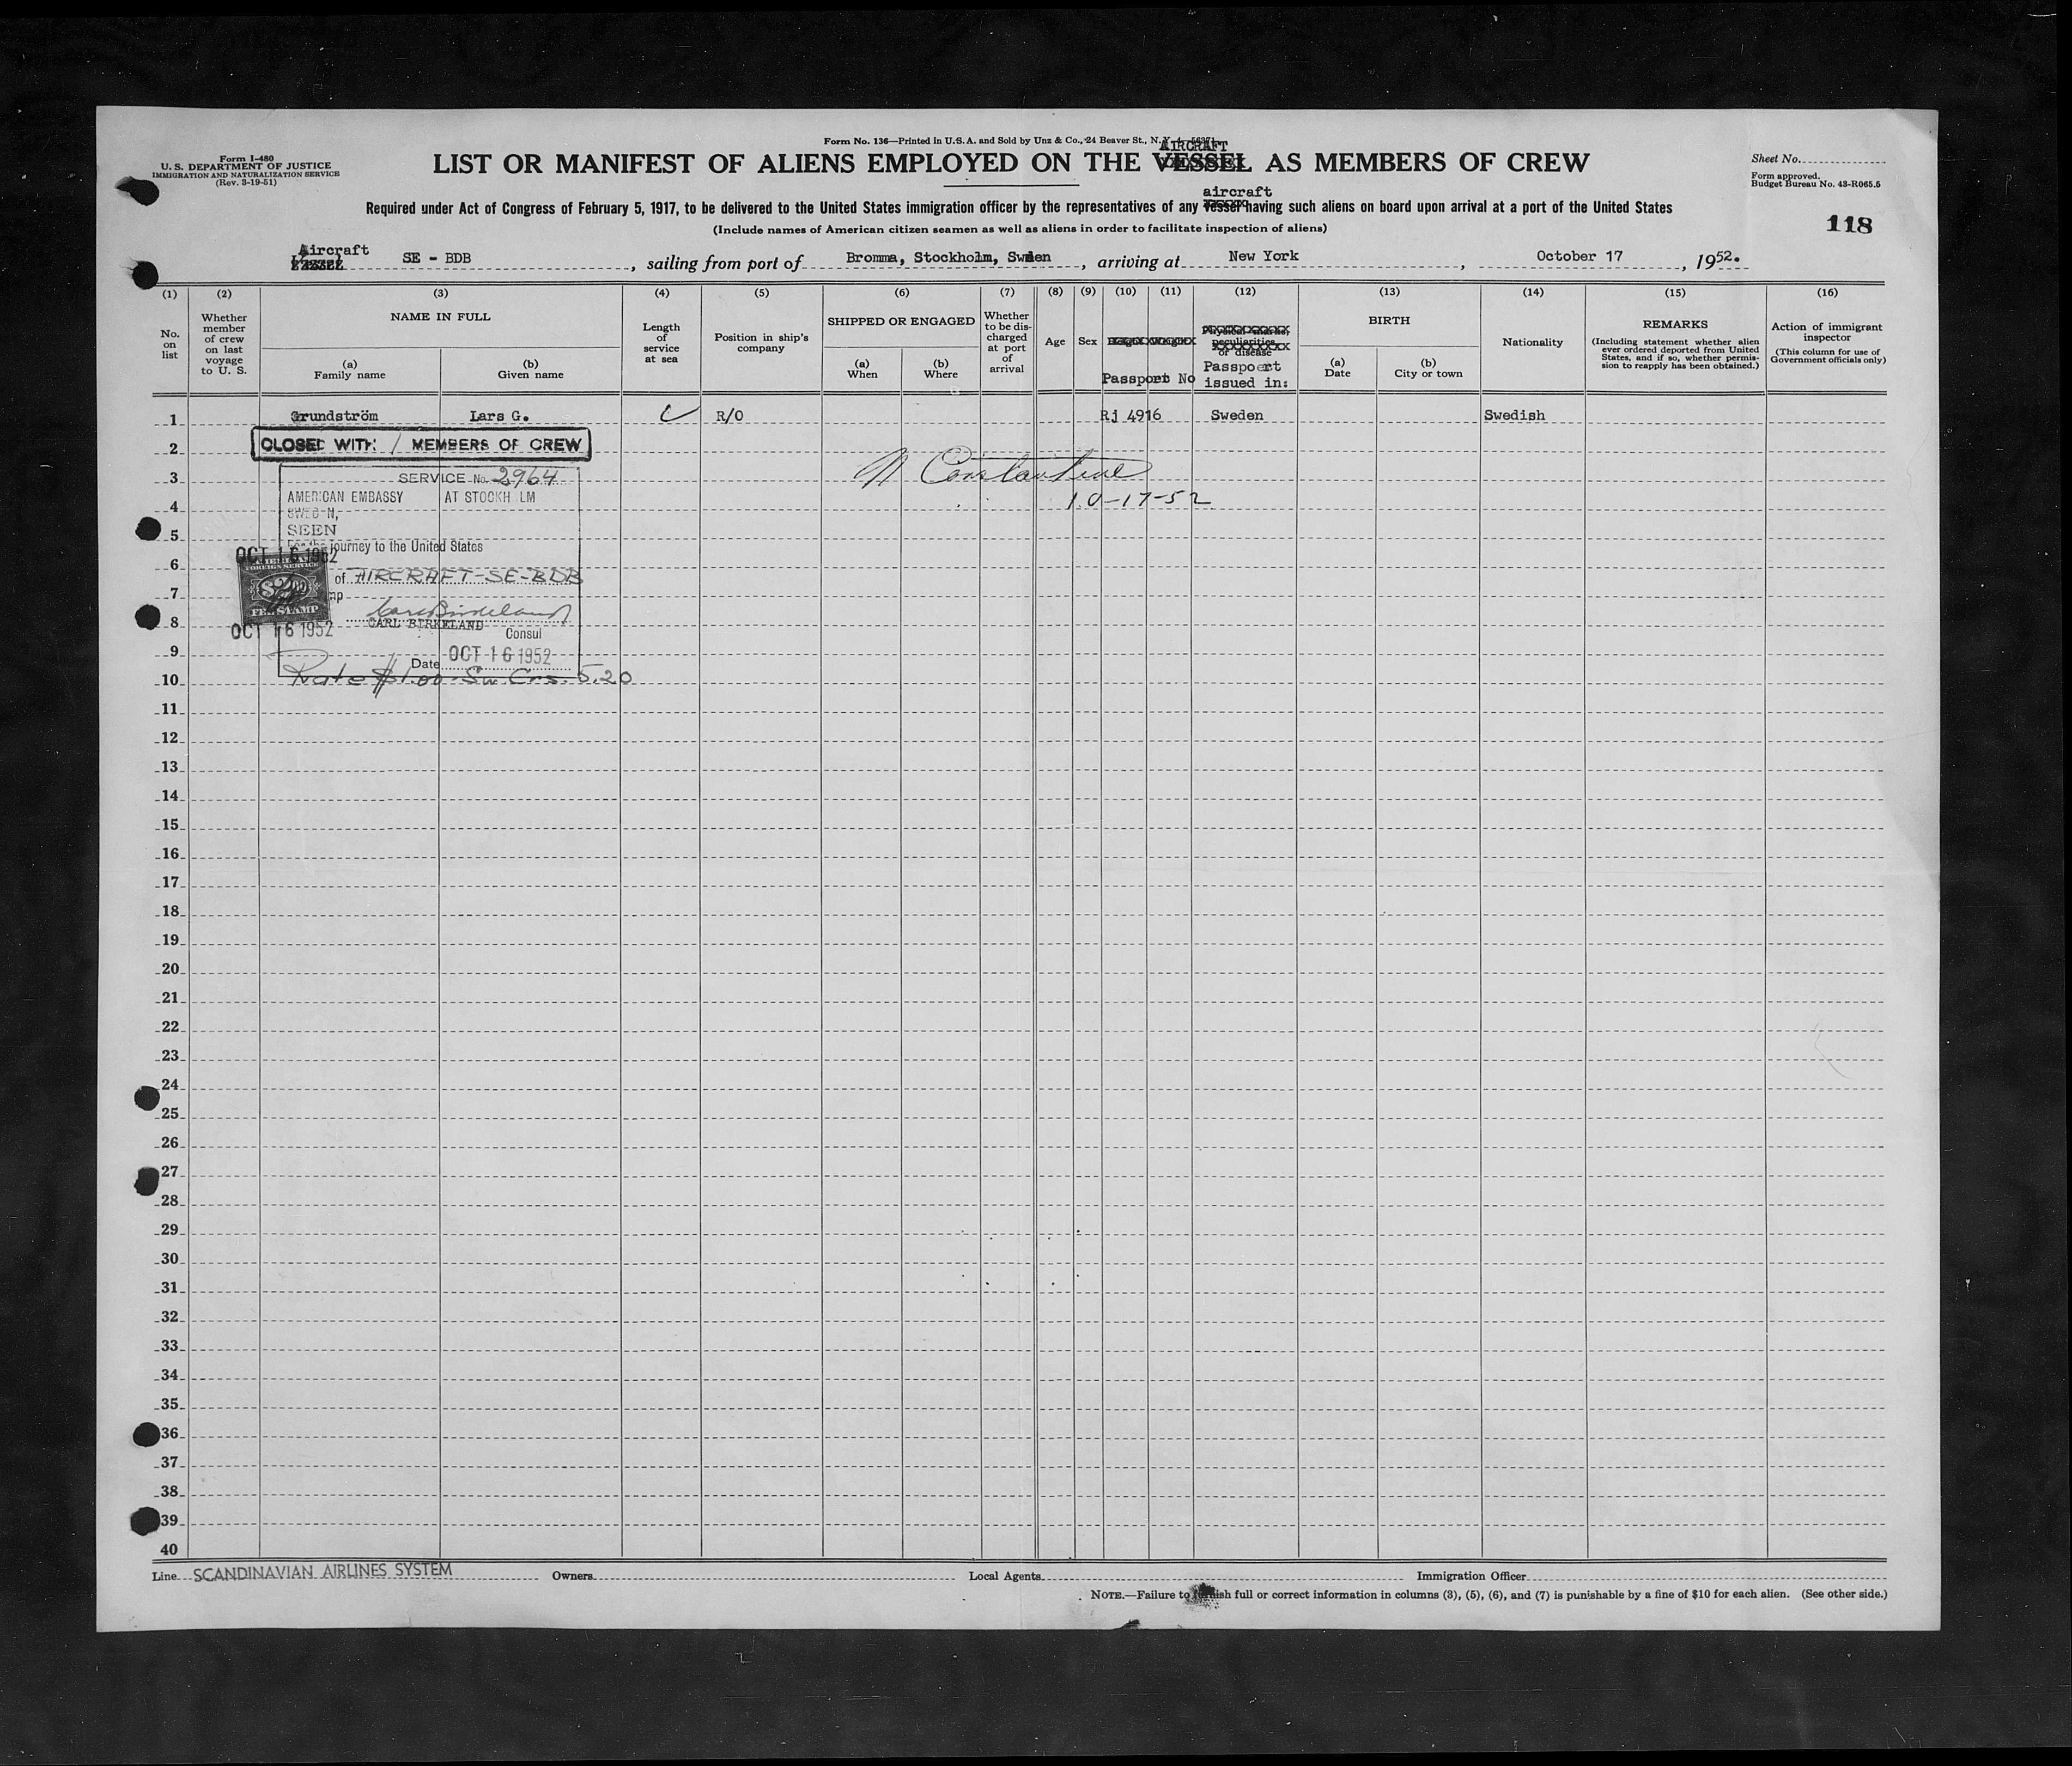 Form No. 136—Printed in U.S.A. and Sold by Unz & Co., 24 Beaver St., N.Y.
Form I-480
U. S. DEPARTMENT OF JUSTICE
IMMIGRATION AND NATURALIZATION SERVICE
(Rev. 3-19-51)
AIRCRAFT
LIST OR MANIFEST OF ALIENS EMPLOYED ON THE VESSEL AS MEMBERS OF CREW
Sheet No.
Form approved.
Budget Bureau No. 43-R065.5
aircraft
Required under Act of Congress of February 5, 1917, to be delivered to the United States immigration officer by the representatives of any vessel having such aliens on board upon arrival at a port of the United States
(Include names of American citizen seamen as well as aliens in order to facilitate inspection of aliens)
118
Aircraft SE - BDB, sailing from port of Bromma, Stockholm, Sweden, arriving at New York, October 17, 1952.
(1) (2) (3) (4) (5) (6) (7) (8) (9) (10) (11) (12) (13) (14) (15) (16)
No. on list
Whether member of crew on last voyage to U. S.
NAME IN FULL
(a) Family name
(b) Given name
Length of service at sea
Position in ship's company
SHIPPED OR ENGAGED
(a) When
(b) Where
Whether to be discharged at port of arrival
Age
Sex
Passport No
Physical marks, peculiarities, or disease
Passpoert issued in:
BIRTH
(a) Date
(b) City or town
Nationality
REMARKS
(Including statement whether alien ever ordered deported from United States, and if so, whether permission to reapply has been obtained.)
Action of immigrant inspector
(This column for use of Government officials only)
1 Grundström Lars G. R/O Rj 4916 Sweden Swedish
2
3
4
5
6
7
8
9
10
11
12
13
14
15
16
17
18
19
20
21
22
23
24
25
26
27
28
29
30
31
32
33
34
35
36
37
38
39
40
CLOSED WITH 1 MEMBERS OF CREW
SERVICE No. 2964
AMERICAN EMBASSY AT STOCKH LM
SWED N,
SEEN
For the journey to the United States
OCT 16 1952
of AIRCRAFT-SE-BDB
FOREIGN SERVICE
$2.00
FEE STAMP
Carl Birkeland
CARL BIRKELAND
Consul
OCT 16 1952
Date OCT 16 1952
Rate $1.00 Sw Crs. 5.20
N Constantine
10-17-52
Line SCANDINAVIAN AIRLINES SYSTEM Owners Local Agents Immigration Officer
NOTE.—Failure to furnish full or correct information in columns (3), (5), (6), and (7) is punishable by a fine of $10 for each alien. (See other side.)